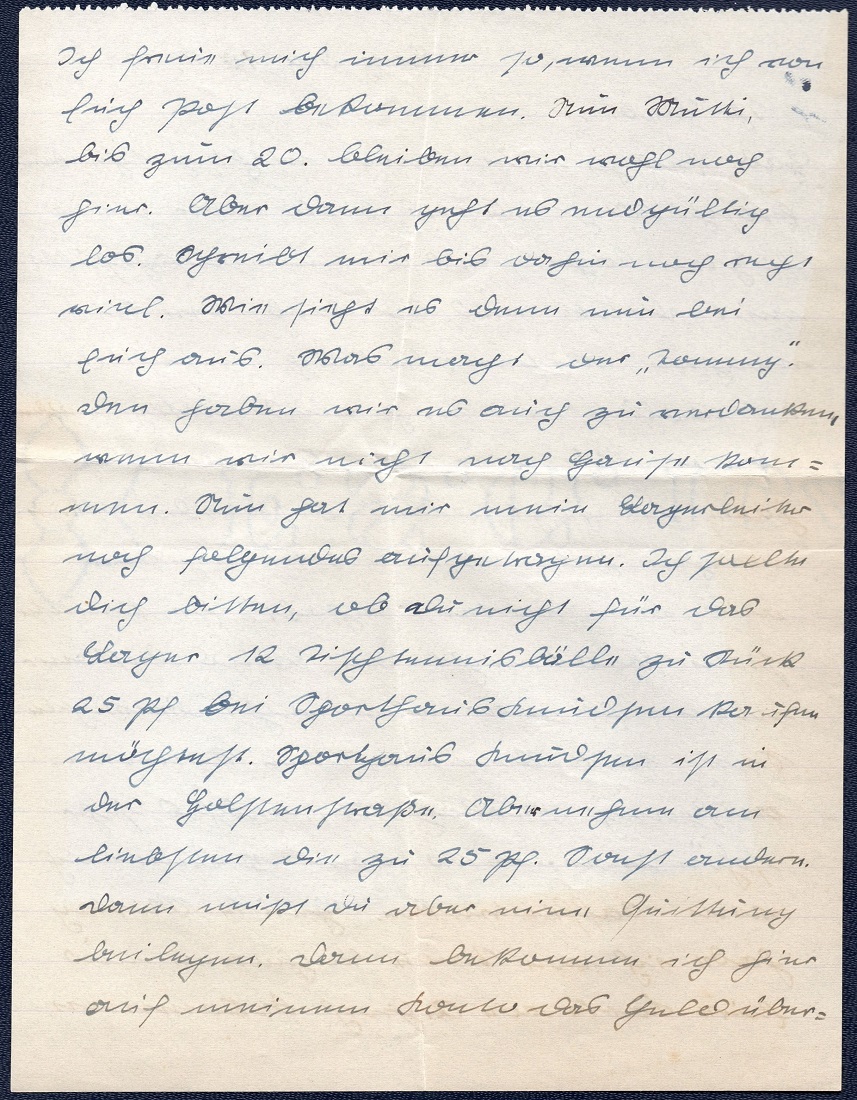 Ich freue mich immer so, wenn ich von
Euch Post bekommen. Nun Mutti,
bis zum 20. bleiben wir wohl noch
hier. Aber dann geht es endgültig
los. Schreibt mir bis dahin noch recht
viel. Wie sieht es denn nun bei
Euch aus. Was macht der „Tommy".
Den haben wir es auch zu verdanken,
wenn wir nicht nach Hause kom=
men. Nun hat mir mein Lagerleiter
noch folgendes aufgetragen. Ich sollte
dich bitten, ob du nicht für das
Lager 12 Tischtennisbälle zu Stück
25 Pf bei Sporthaus Knudsen kaufen
möchtest. Sporthaus Knudsen ist in
der Holstenstraße. Aber nehme am
liebsten die zu 25 Pf. Sonst andern.
Dann mußt du aber eine Quittung
beilegen. Dann bekomme ich hier
auf meinem Konto das Geld über=